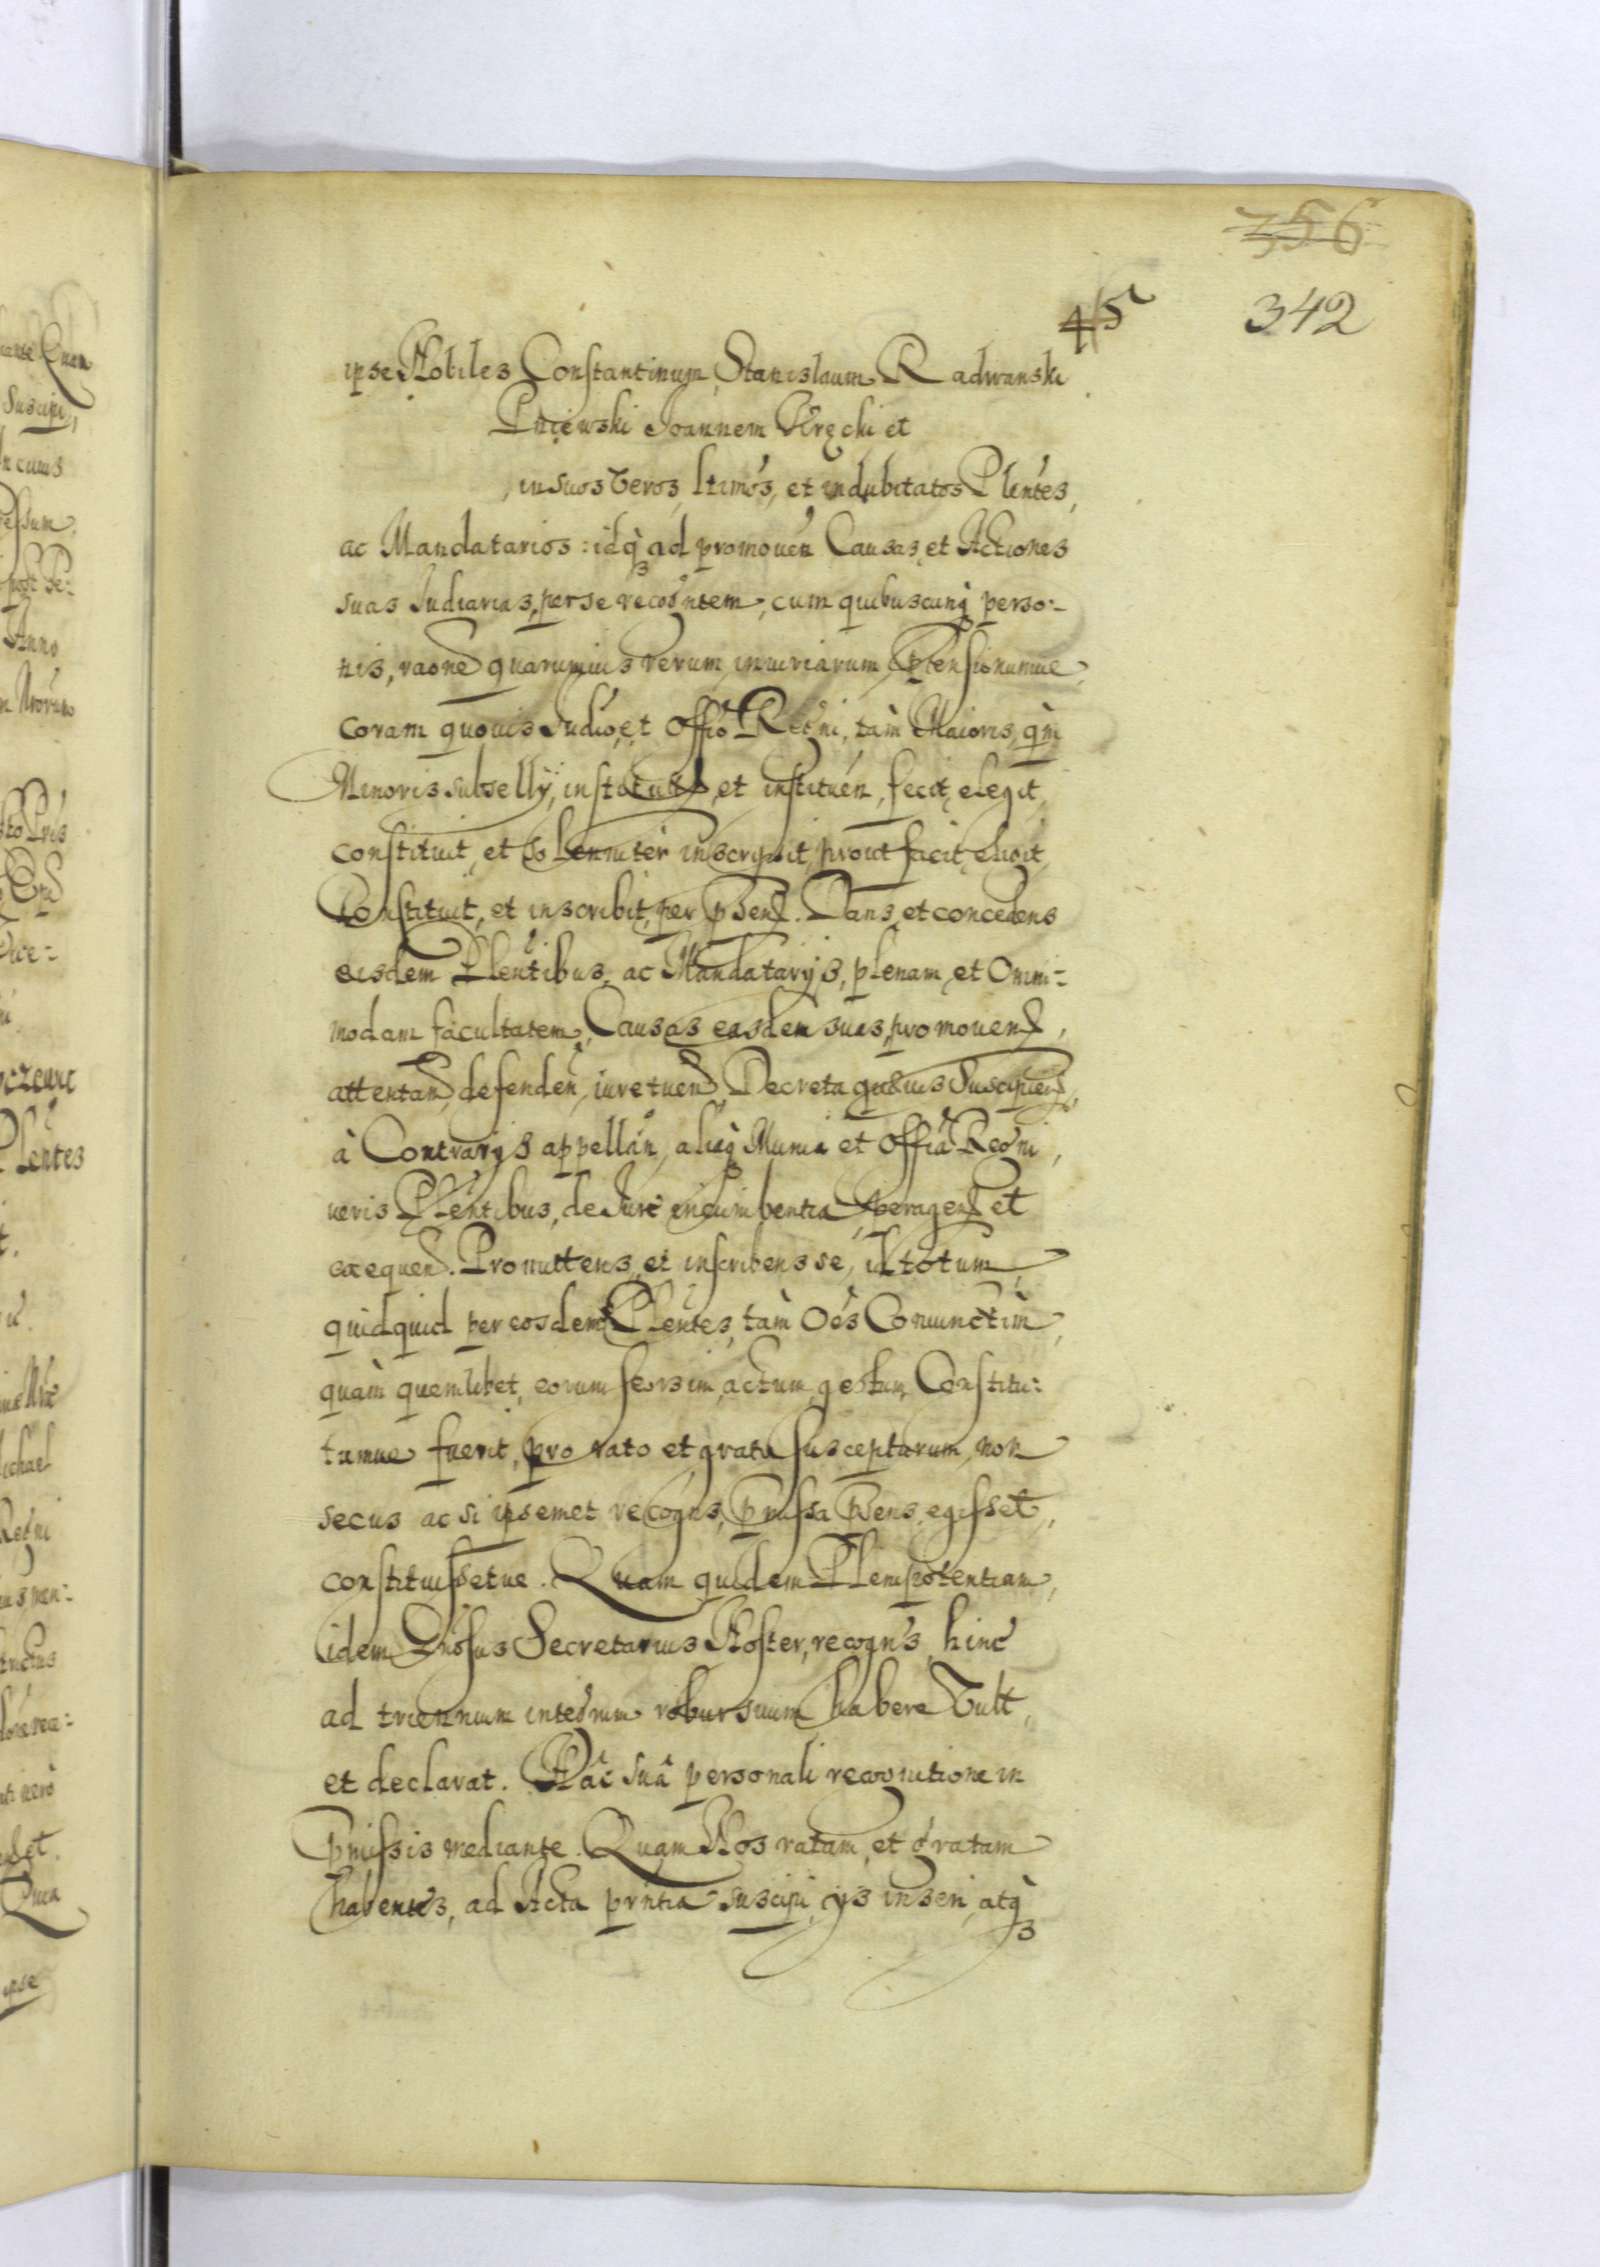 356
342
45
ipse Nobiles Constantinum, Stanislaum Radwanski
Pniewski Joannem et
, in suos Veros, ltimós, et indubitatos Plentes,
ac Mandatarios: idq̀ ad promouen Causas, et Actiones
suas Judiarias, per se recogntem, cum quibuscunq̀ perso:-
nis, raone quarumuis rerum iniuriarum ptensionumue,
coram quouis Judio, et Offio Regni, tàm Maioris, qm̀
Minoris subsellÿ, institut, et instituén, fecit, elegit,
constituit, et solenniter inscripsit, prout facit, eligit,
Constituit, et inscribit, per psen. Dans, et concedens
eisdem Plentibus, ac Mandatarÿs, plenam, et Omni:-
modam facultatem, Causas easdem suas, promouen,
attentan, defenden, iure tuen, Decreta quaeuis Suscipien,
à Contrarÿs appellan, aliaq̀ Munia et Offia Regni,
veris Plentibus, de Jure incumbentia, peragen et
exequen. Promittens, et inscribens se, id totum,
quidquid per eosdem Plentes, tàm Oés Coniunctim,
quàm quemlibet, eorum seorsim, actum, gestum, Constitu:-
tumue fuerit, pro rato et grato suscepturum, non
secus ac si ipsemet recogns, pmissa psens, egisset,
constituissetue. Quam quidem Plenipotentiam,
idem Gnosus Secretarius Noster, recogn's, hinc
ad triennium integrum robur suum habere Vult,
et declarat. Hâc suâ personali recognitione in
pmissis mediante. Quam Nos ratam, et gratam
habentes, ad Acta prntia suscipi, ÿs inseri, atq̀